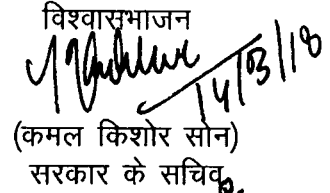 विश्वासभाजन
14/03/18
(कमल किशोर सोन)
सरकार के सचिव